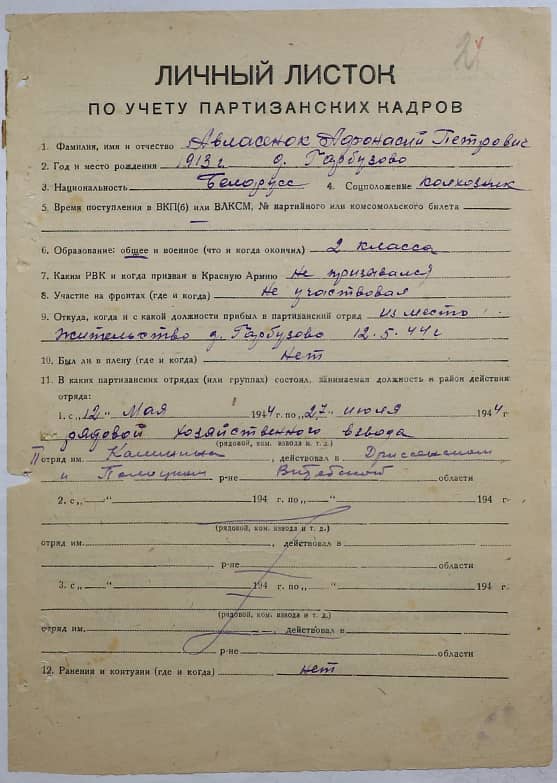 2
ЛИЧНЫЙ ЛИСТОК
ПО УЧЕТУ ПАРТИЗАНСКИХ КАДРОВ
1. Фамилия, имя и отчество Авласенок Афонасий Петрович
2. Год и место рождения 1913 г д. Гарбузово
3. Национальность Белорусс 4. Соцположение колхозник
5. Время поступления в ВКП(б) или ВЛКСМ, № партийного или комсомольского билета
6. Образование: общее и военное (что и когда окончил) 2 класса
7. Каким РВК и когда призван в Красную Армию Не призывался
8. Участие на фронтах (где и когда) Не участвовал
9. Откуда, когда и с какой должности прибыл в партизанский отряд из место
жительство д. Гарбузово 12.5.44 г
10. Был ли в плену (где и когда) нет
11. В каких партизанских отрядах (или группах) состоял, занимаемая должность и район действия
отряда:
1. с „12“ Мая 1944 г. по „27“ июля 1944 г
рядовой хозяйственного взвода
(рядовой, ком. взвода и т. д.)
отряд им. Калинина, действовал в Дриссенском
и Полоцком р-не Витебской области
2. с „ “ 194 г. по „ “ 194 г
(рядовой, ком. взвода и т. д.)
отряд им. , действовал в
р-не области
3. с „ “ 194 г. по „ “ 194 г.
(рядовой, ком. взвода и т. д.)
отряд им. , действовал в
р-не области
12. Ранения и контузии (где и когда) нет